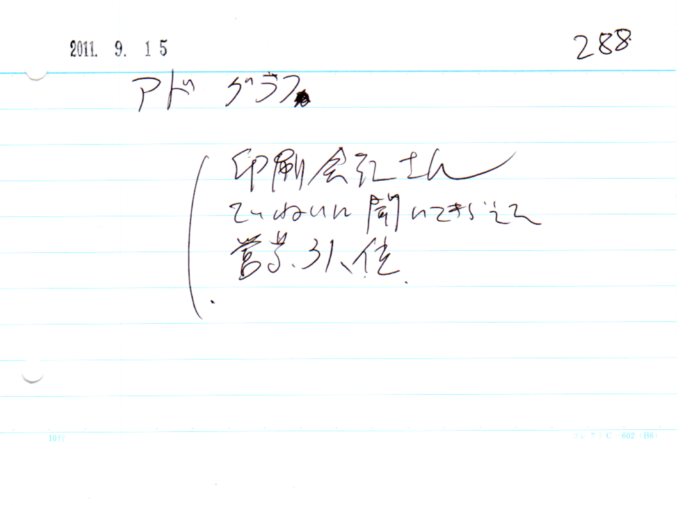 2011. 9. 15
288
アド グラフ
印刷会社さん
ていねいに聞いて
営業、3人、位